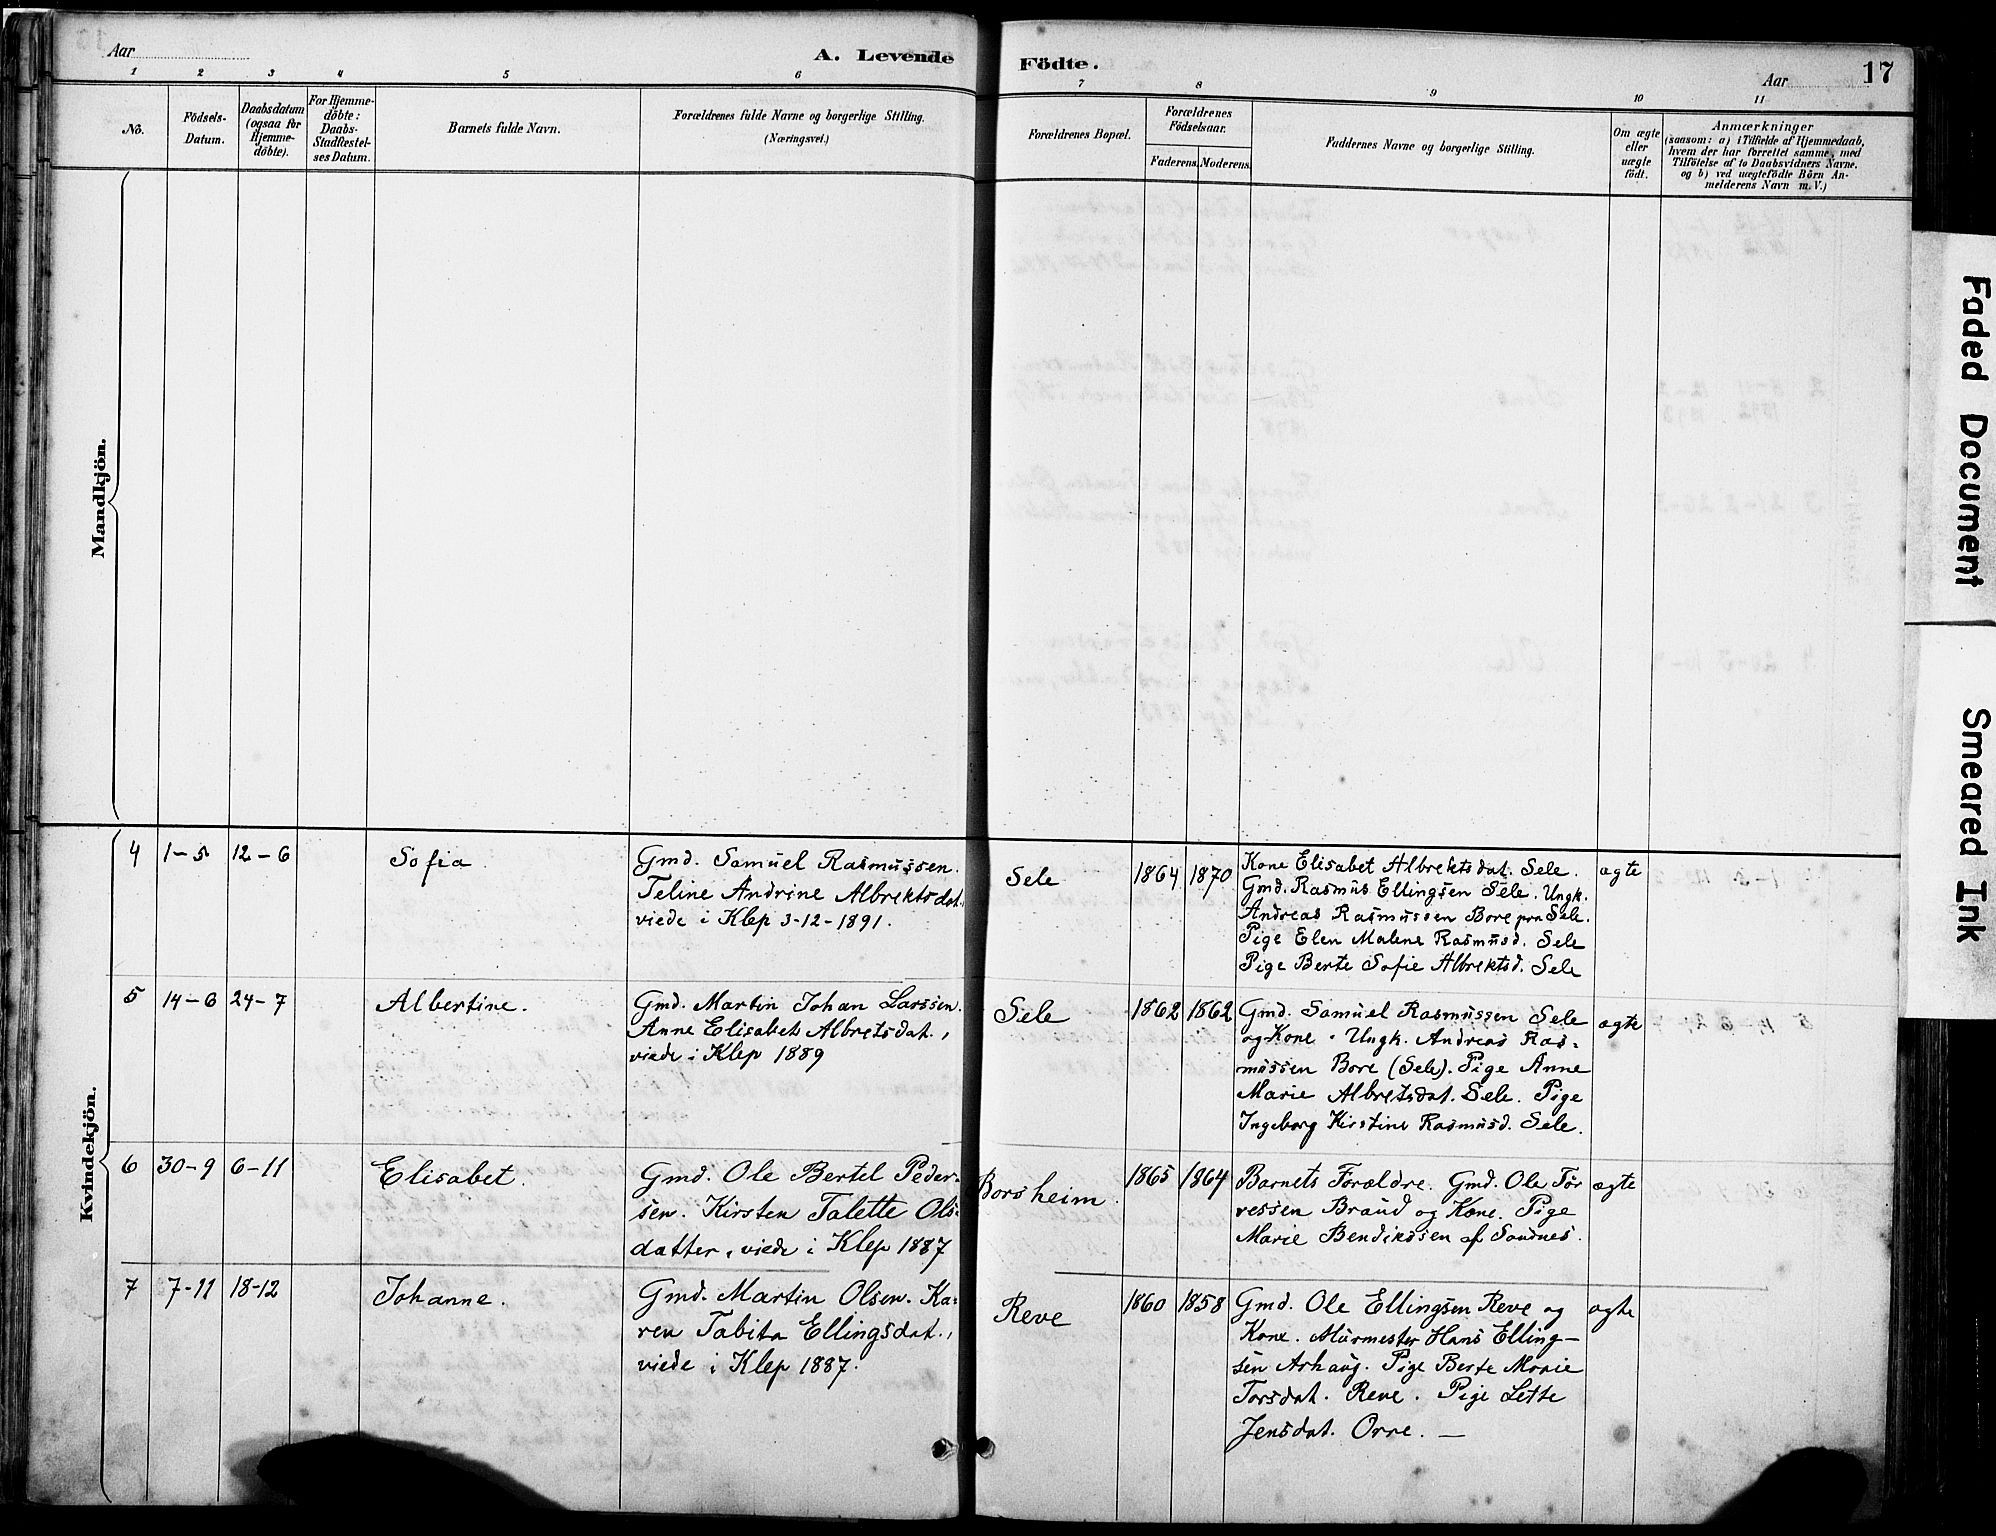 Aar
A. Levende
Födte.
Aar
17
1 2 3 4 5 6 7 8 9 10 11
No.
Födsels-
Datum.
Daabsdatum
(ogsaa for
Hjemme-
döbte).
For Hjemme-
döbte:
Daabs-
Stadfæstel-
ses Datum.
Barnets fulde Navn.
Forældrenes fulde Navne og borgerlige Stilling.
(Næringsvei.)
Forældrenes Bopæl.
Forældrenes
Födselsaar.
Faderens. Moderens.
Faddernes Navne og borgerlige Stilling.
Om ægte
eller
uægte
födt.
Anmærkninger
(saasom: a) i Tilfælde af Hjemmedaab,
hvem der har forrettet samme, med
Tilföielse af to Daabsvidners Navne.
og b) ved uægtefödte Börn An-
melderens Navn m. V.)
Mandkjön.
Kvindekjön.
4 1-5 12-6
Sofia
Gmd. Samuel Rasmussen.
Teline Andrine Albrektsdat.
viede i Klep 3-12-1891.
Sele
1864 1870
Kone Elisabet Albrektsdat. Sele.
Gmd. Rasmus Ellingsen Sele. Ungk.
Andreas Rasmussen Bore pra Sele.
Pige Elen Malene Rasmusd. Sele
Pige Berte Sofie Albrektsd. Sele
ægte
5 14-6 24-7
Albertine.
Gmd. Martin Johan Larssen.
Anne Elisabet Albretsdat.,
viede i Klep 1889
Sele
1862 1862
Gmd. Samuel Rasmussen Sele
og Kone. Ungk. Andreas Ras-
mussen Bore (Sele). Pige Anne
Marie Albretsdat. Sele. Pige
Ingeborg Kirstine Rasmusd. Sele.
ægte
6 30-9 6-11
Elisabet.
Gmd. Ole Bertel Peder-
sen. Kirsten Talette Ols-
datter, viede i Klep 1887
Borsheim.
1865 1864
Barnets Forældre. Gmd. Ole Tør
ressen Braud og Kone. Pige
Marie Bendiksen af Sandnes.
ægte
7 7-11 18-12
Johanne.
Gmd. Martin Olsen. Ka-
ren Tabita Ellingsdat.,
viede i Klep 1887.
Reve
1860 1858
Gmd. Ole Ellingsen Reve og
Kone. Murmester Hans Elling-
sen Arhaug. Pige Berte Marie
Torsdat. Reve. Pige Lette
Jensdat. Orre. —
ægte
Faded Document
Smeared Ink